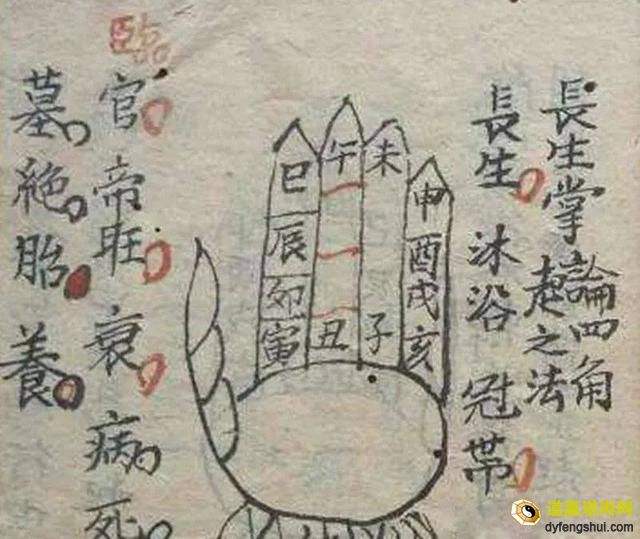 長生掌論四角
起之法
長生 沐浴 冠帯
臨
官帝旺衰病死
墓絶胎養
巳午未
申
辰
酉
卯
戌
寅丑子亥
道易風水网
dyfengshui.com